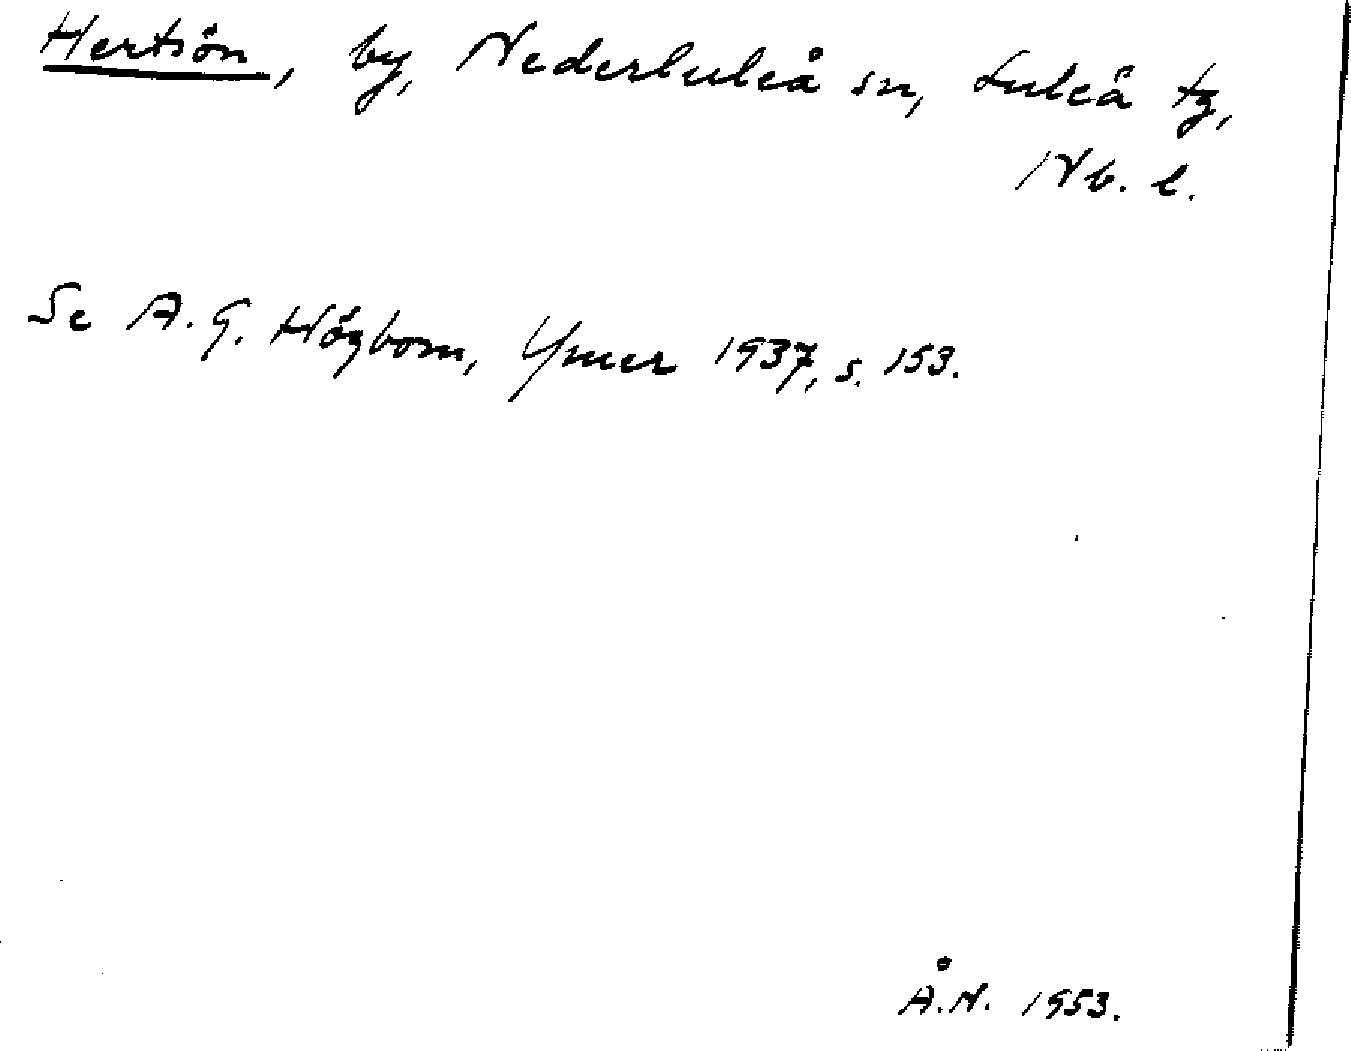 Hertsön, by, Nederluleå sn, Luleå tg,
Nb. l.
Se A. G. Högbom, Ymer 1937, s. 153.
Å.N. 1953.